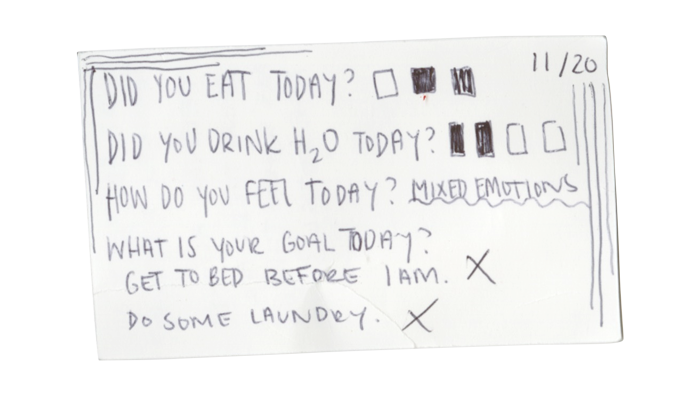 11/20
DID YOU EAT TODAY?
DID YOU DRINK H₂O TODAY?
HOW DO YOU FEEL TODAY? MIXED EMOTIONS
WHAT IS YOUR GOAL TODAY?
GET TO BED BEFORE 1 AM. X
DO SOME LAUNDRY. X